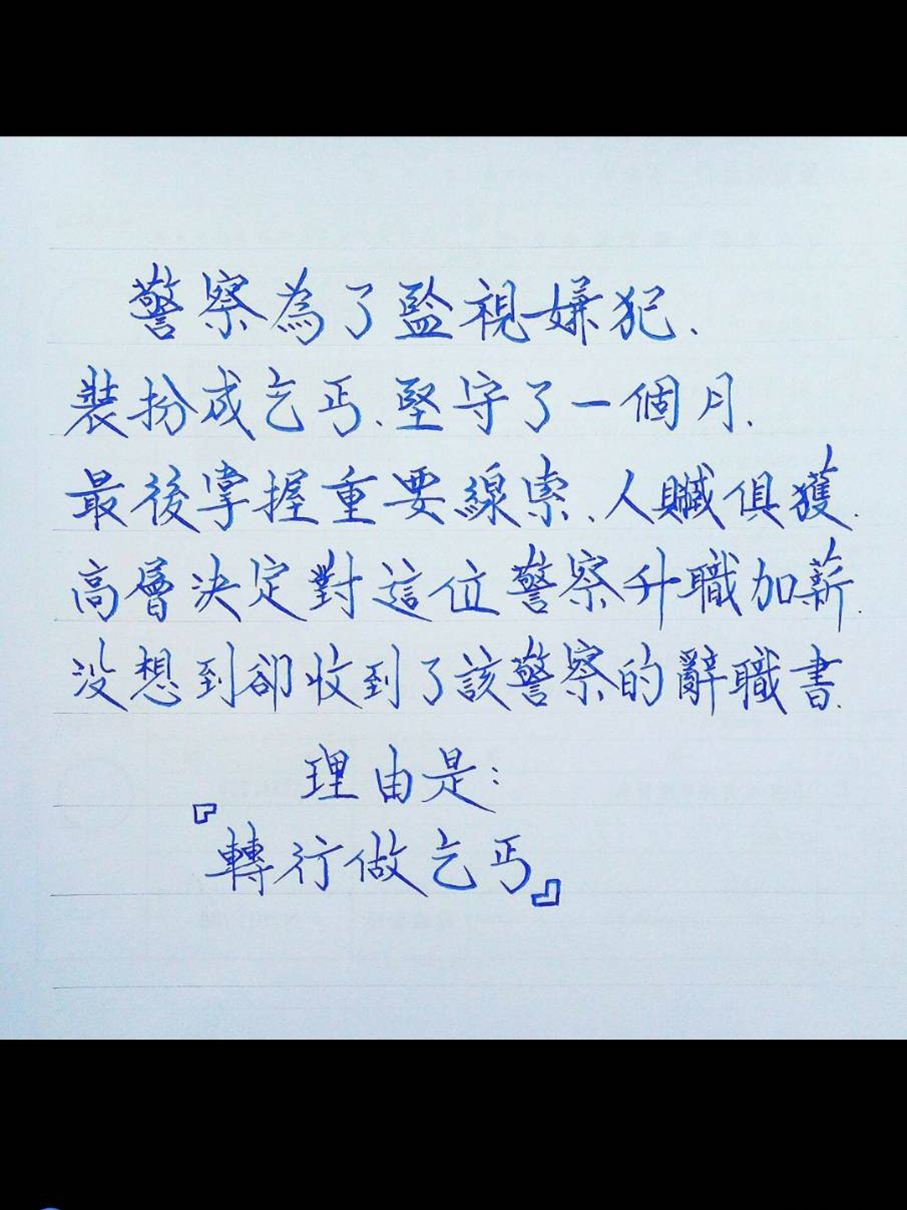 警察為了監視嫌犯、
裝扮成乞丐、堅守了一個月、
最後掌握重要線索、人贓俱獲、
高層決定對這位警察升職加薪、
沒想到卻收到了該警察的辭職書、
理由是：
『轉行做乞丐』